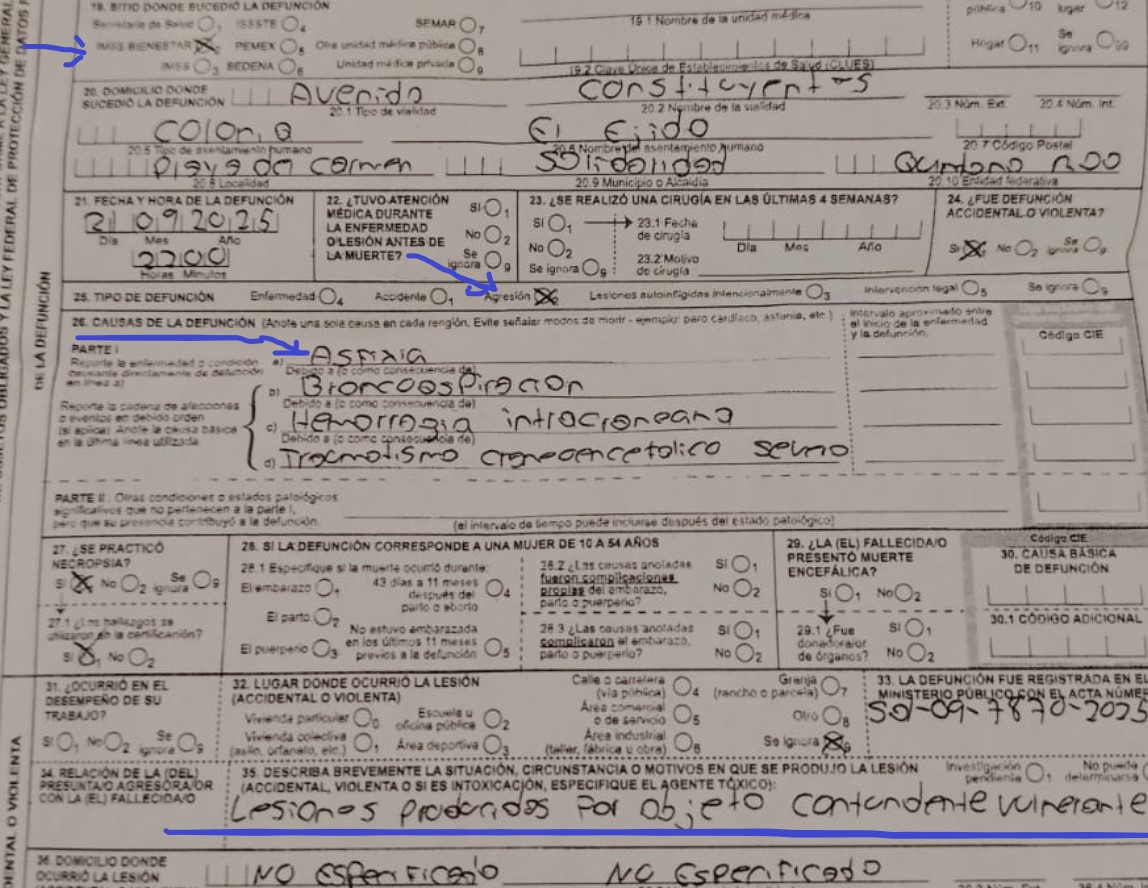 19. SITIO DONDE SUCEDIÓ LA DEFUNCIÓN
Secretaría de Salud 1 ISSSTE 4 SEMAR 7
IMSS BIENESTAR 2 PEMEX 5 Otra unidad médica pública 8
IMSS 3 SEDENA 6 Unidad médica privada 9
19.1 Nombre de la unidad médica
19.2 Clave Única de Establecimientos de Salud (CLUES)
pública 10 lugar 12
Hogar 11 Se ignora 99
20. DOMICILIO DONDE SUCEDIÓ LA DEFUNCIÓN
Avenida Constituyentes
20.1 Tipo de vialidad 20.2 Nombre de la vialidad 20.3 Núm. Ext. 20.4 Núm. Int.
Colonia El Ejido
20.5 Tipo de asentamiento humano 20.6 Nombre del asentamiento humano 20.7 Código Postal
Playa del Carmen Solidaridad Quintana Roo
20.8 Localidad 20.9 Municipio o Alcaldía 20.10 Entidad federativa
21. FECHA Y HORA DE LA DEFUNCIÓN
21 09 2025
Día Mes Año
2200
Horas Minutos
22. ¿TUVO ATENCIÓN MÉDICA DURANTE LA ENFERMEDAD O LESIÓN ANTES DE LA MUERTE?
SI 1
No 2
Se ignora 9
23. ¿SE REALIZÓ UNA CIRUGÍA EN LAS ÚLTIMAS 4 SEMANAS?
SI 1 23.1 Fecha de cirugía
No 2 Día Mes Año
Se ignora 9 23.2 Motivo de cirugía
24. ¿FUE DEFUNCIÓN ACCIDENTAL O VIOLENTA?
SI No 2 Se ignora 9
25. TIPO DE DEFUNCIÓN Enfermedad 4 Accidente 1 Agresión Lesiones autoinfligidas intencionalmente 3 Intervención legal 5 Se ignora 9
26. CAUSAS DE LA DEFUNCIÓN (Anote una sola causa en cada renglón. Evite señalar modos de morir - ejemplo: paro cardíaco, astenia, etc.)
Intervalo aproximado entre el inicio de la enfermedad y la defunción.
Código CIE
PARTE I
Reporte la enfermedad o condición causante directamente de defunción en línea a)
a) Asfixia
Debido a (o como consecuencia de)
b) Broncoaspiracion
Debido a (o como consecuencia de)
Reporte la cadena de afecciones o eventos en debido orden (si aplica). Anote la causa básica en la última línea utilizada
c) Hemorragia intracraneana
Debido a (o como consecuencia de)
d) Tracmatismo craneoencefalico severo
PARTE II Otras condiciones o estados patológicos significativos que no pertenecen a la parte I, pero que su presencia contribuyó a la defunción.
(el intervalo de tiempo puede incluirse después del estado patológico)
27. ¿SE PRACTICÓ NECROPSIA?
SI No 2 Se ignora 9
27.1 ¿Los hallazgos se utilizaron en la certificación?
SI 1 No 2
28. SI LA DEFUNCIÓN CORRESPONDE A UNA MUJER DE 10 A 54 AÑOS
28.1 Especifique si la muerte ocurrió durante:
El embarazo 1 43 días a 11 meses después del parto o aborto 4
El parto 2
El puerperio 3 No estuvo embarazada en los últimos 11 meses previos a la defunción 5
28.2 ¿Las causas anotadas fueron complicaciones propias del embarazo, parto o puerperio?
SI 1
No 2
28.3 ¿Las causas anotadas complicaron el embarazo, parto o puerperio?
SI 1
No 2
29. ¿LA (EL) FALLECIDA/O PRESENTÓ MUERTE ENCEFÁLICA?
SI 1 No 2
29.1 ¿Fue donadora/or de órganos?
SI 1
No 2
Código CIE
30. CAUSA BÁSICA DE DEFUNCIÓN
30.1 CÓDIGO ADICIONAL
31. ¿OCURRIÓ EN EL DESEMPEÑO DE SU TRABAJO?
SI 1 No 2 Se ignora 9
32. LUGAR DONDE OCURRIÓ LA LESIÓN (ACCIDENTAL O VIOLENTA)
Vivienda particular 0 Escuela u oficina pública 2 Calle o carretera (vía pública) 4 Granja (rancho o parcela) 7
Vivienda colectiva (asilo, orfanato, etc.) 1 Área deportiva 3 Área comercial o de servicio 5 Otro 8
Área industrial (taller, fábrica u obra) 6 Se ignora 9
33. LA DEFUNCIÓN FUE REGISTRADA EN EL MINISTERIO PÚBLICO CON EL ACTA NÚMER
SOL-09-7870-2025
34. RELACIÓN DE LA (DEL) PRESUNTA/O AGRESORA/OR CON LA (EL) FALLECIDA/O
35. DESCRIBA BREVEMENTE LA SITUACIÓN, CIRCUNSTANCIA O MOTIVOS EN QUE SE PRODUJO LA LESIÓN
(ACCIDENTAL, VIOLENTA O SI ES INTOXICACIÓN, ESPECIFIQUE EL AGENTE TÓXICO):
Investigación pendiente 1 No puede determinarse
Lesiones producidas por objeto contundente vulnerante
36. DOMICILIO DONDE OCURRIÓ LA LESIÓN
NO especificado NO especificado
DE LA DEFUNCIÓN
LEY FEDERAL DE PROTECCIÓN DE DATOS
DENTAL O VIOLENTA